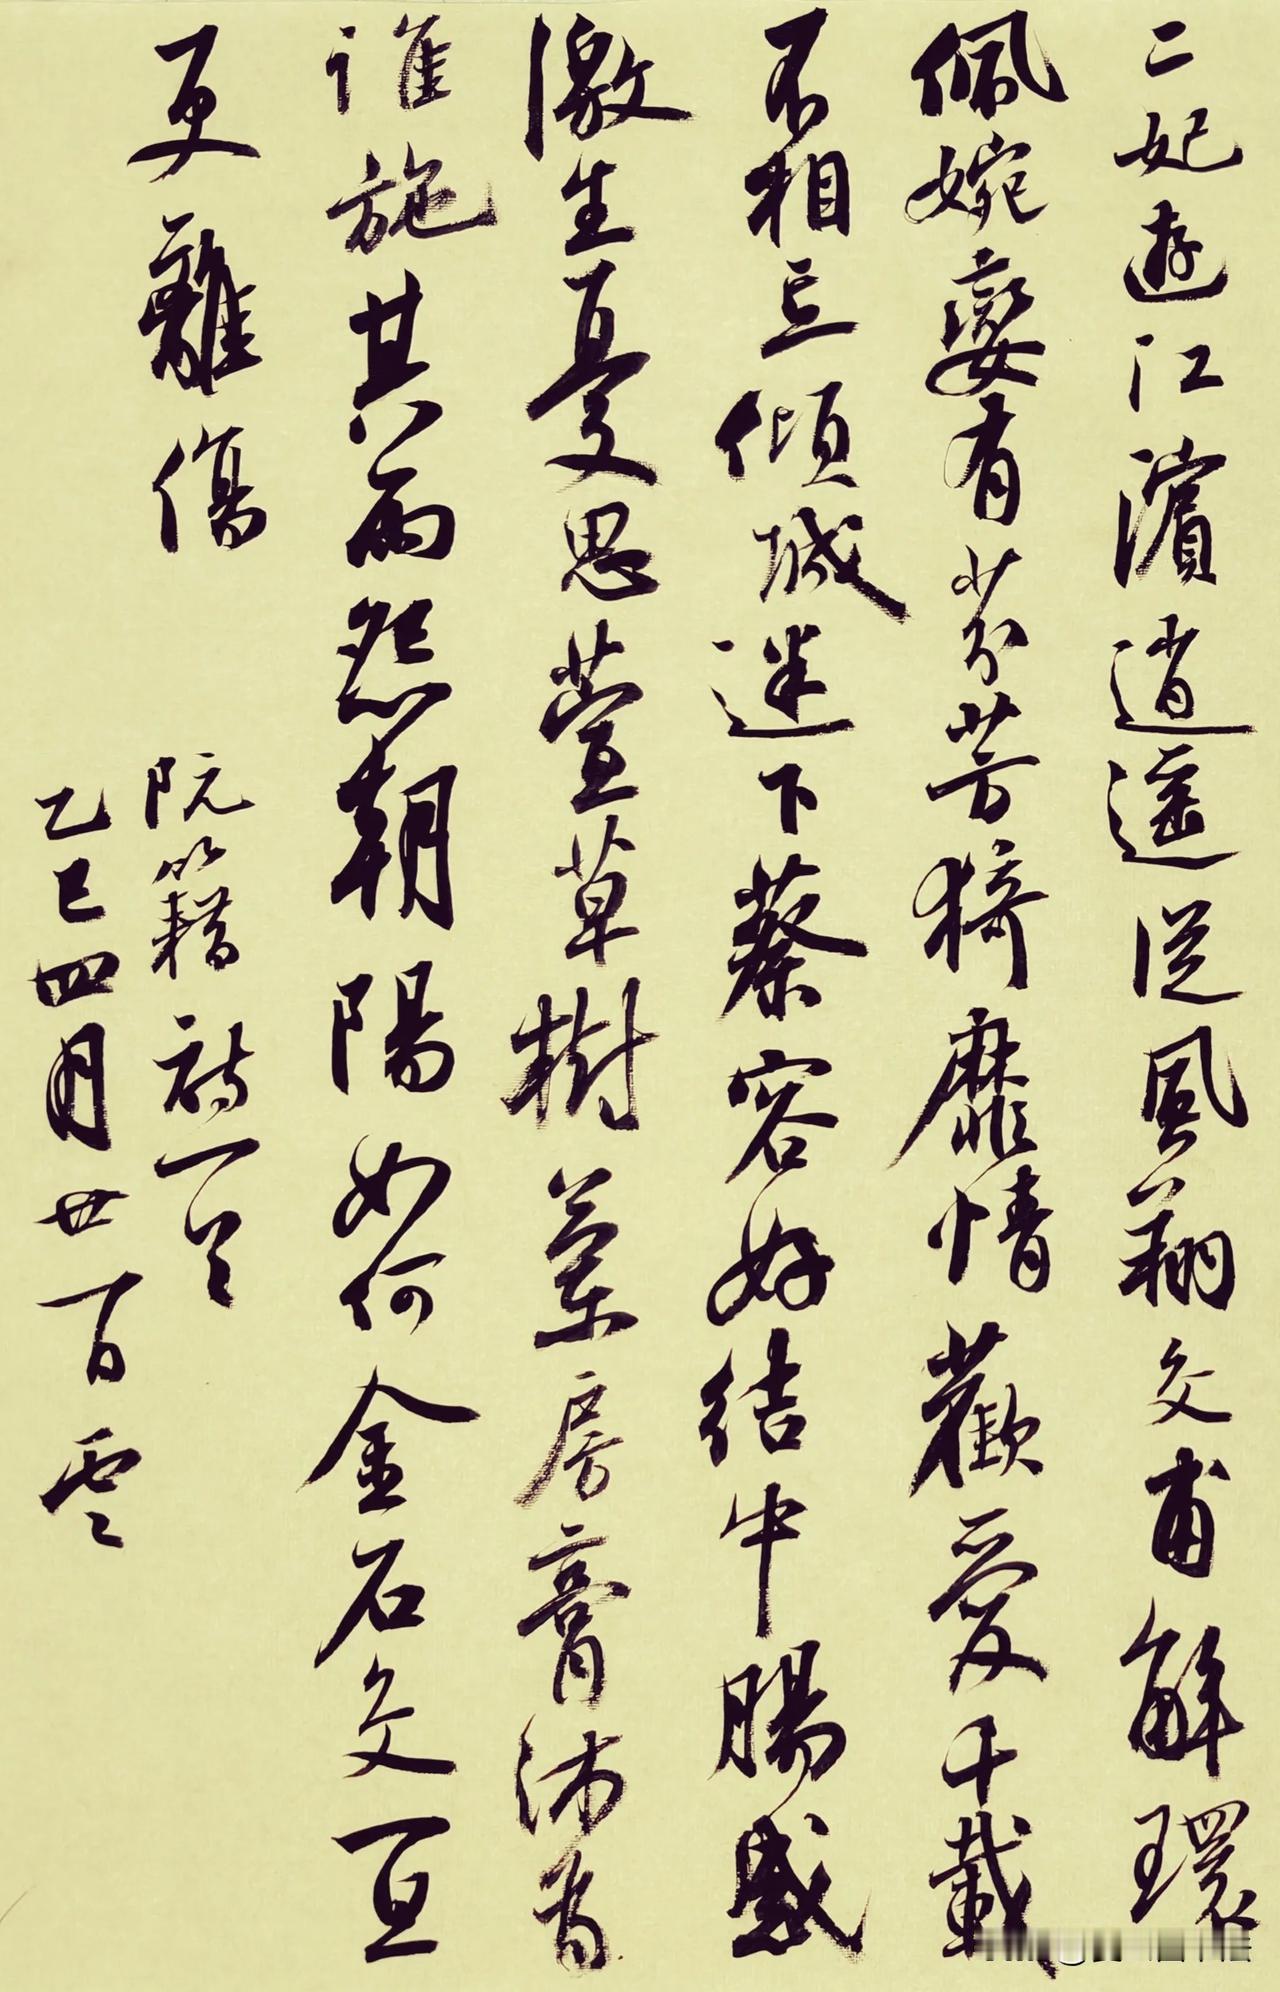 二妃遊江濱逍遙從風翔交甫解環
佩婉孌有芬芳猗靡情歡愛千載
不相忘傾城迷下蔡容好結中腸感
激生憂思萱草樹蘭房膏沐為
誰施其雨怨朝陽如何金石交一旦
更離傷
阮籍詩一首
乙巳四月廿一日雲